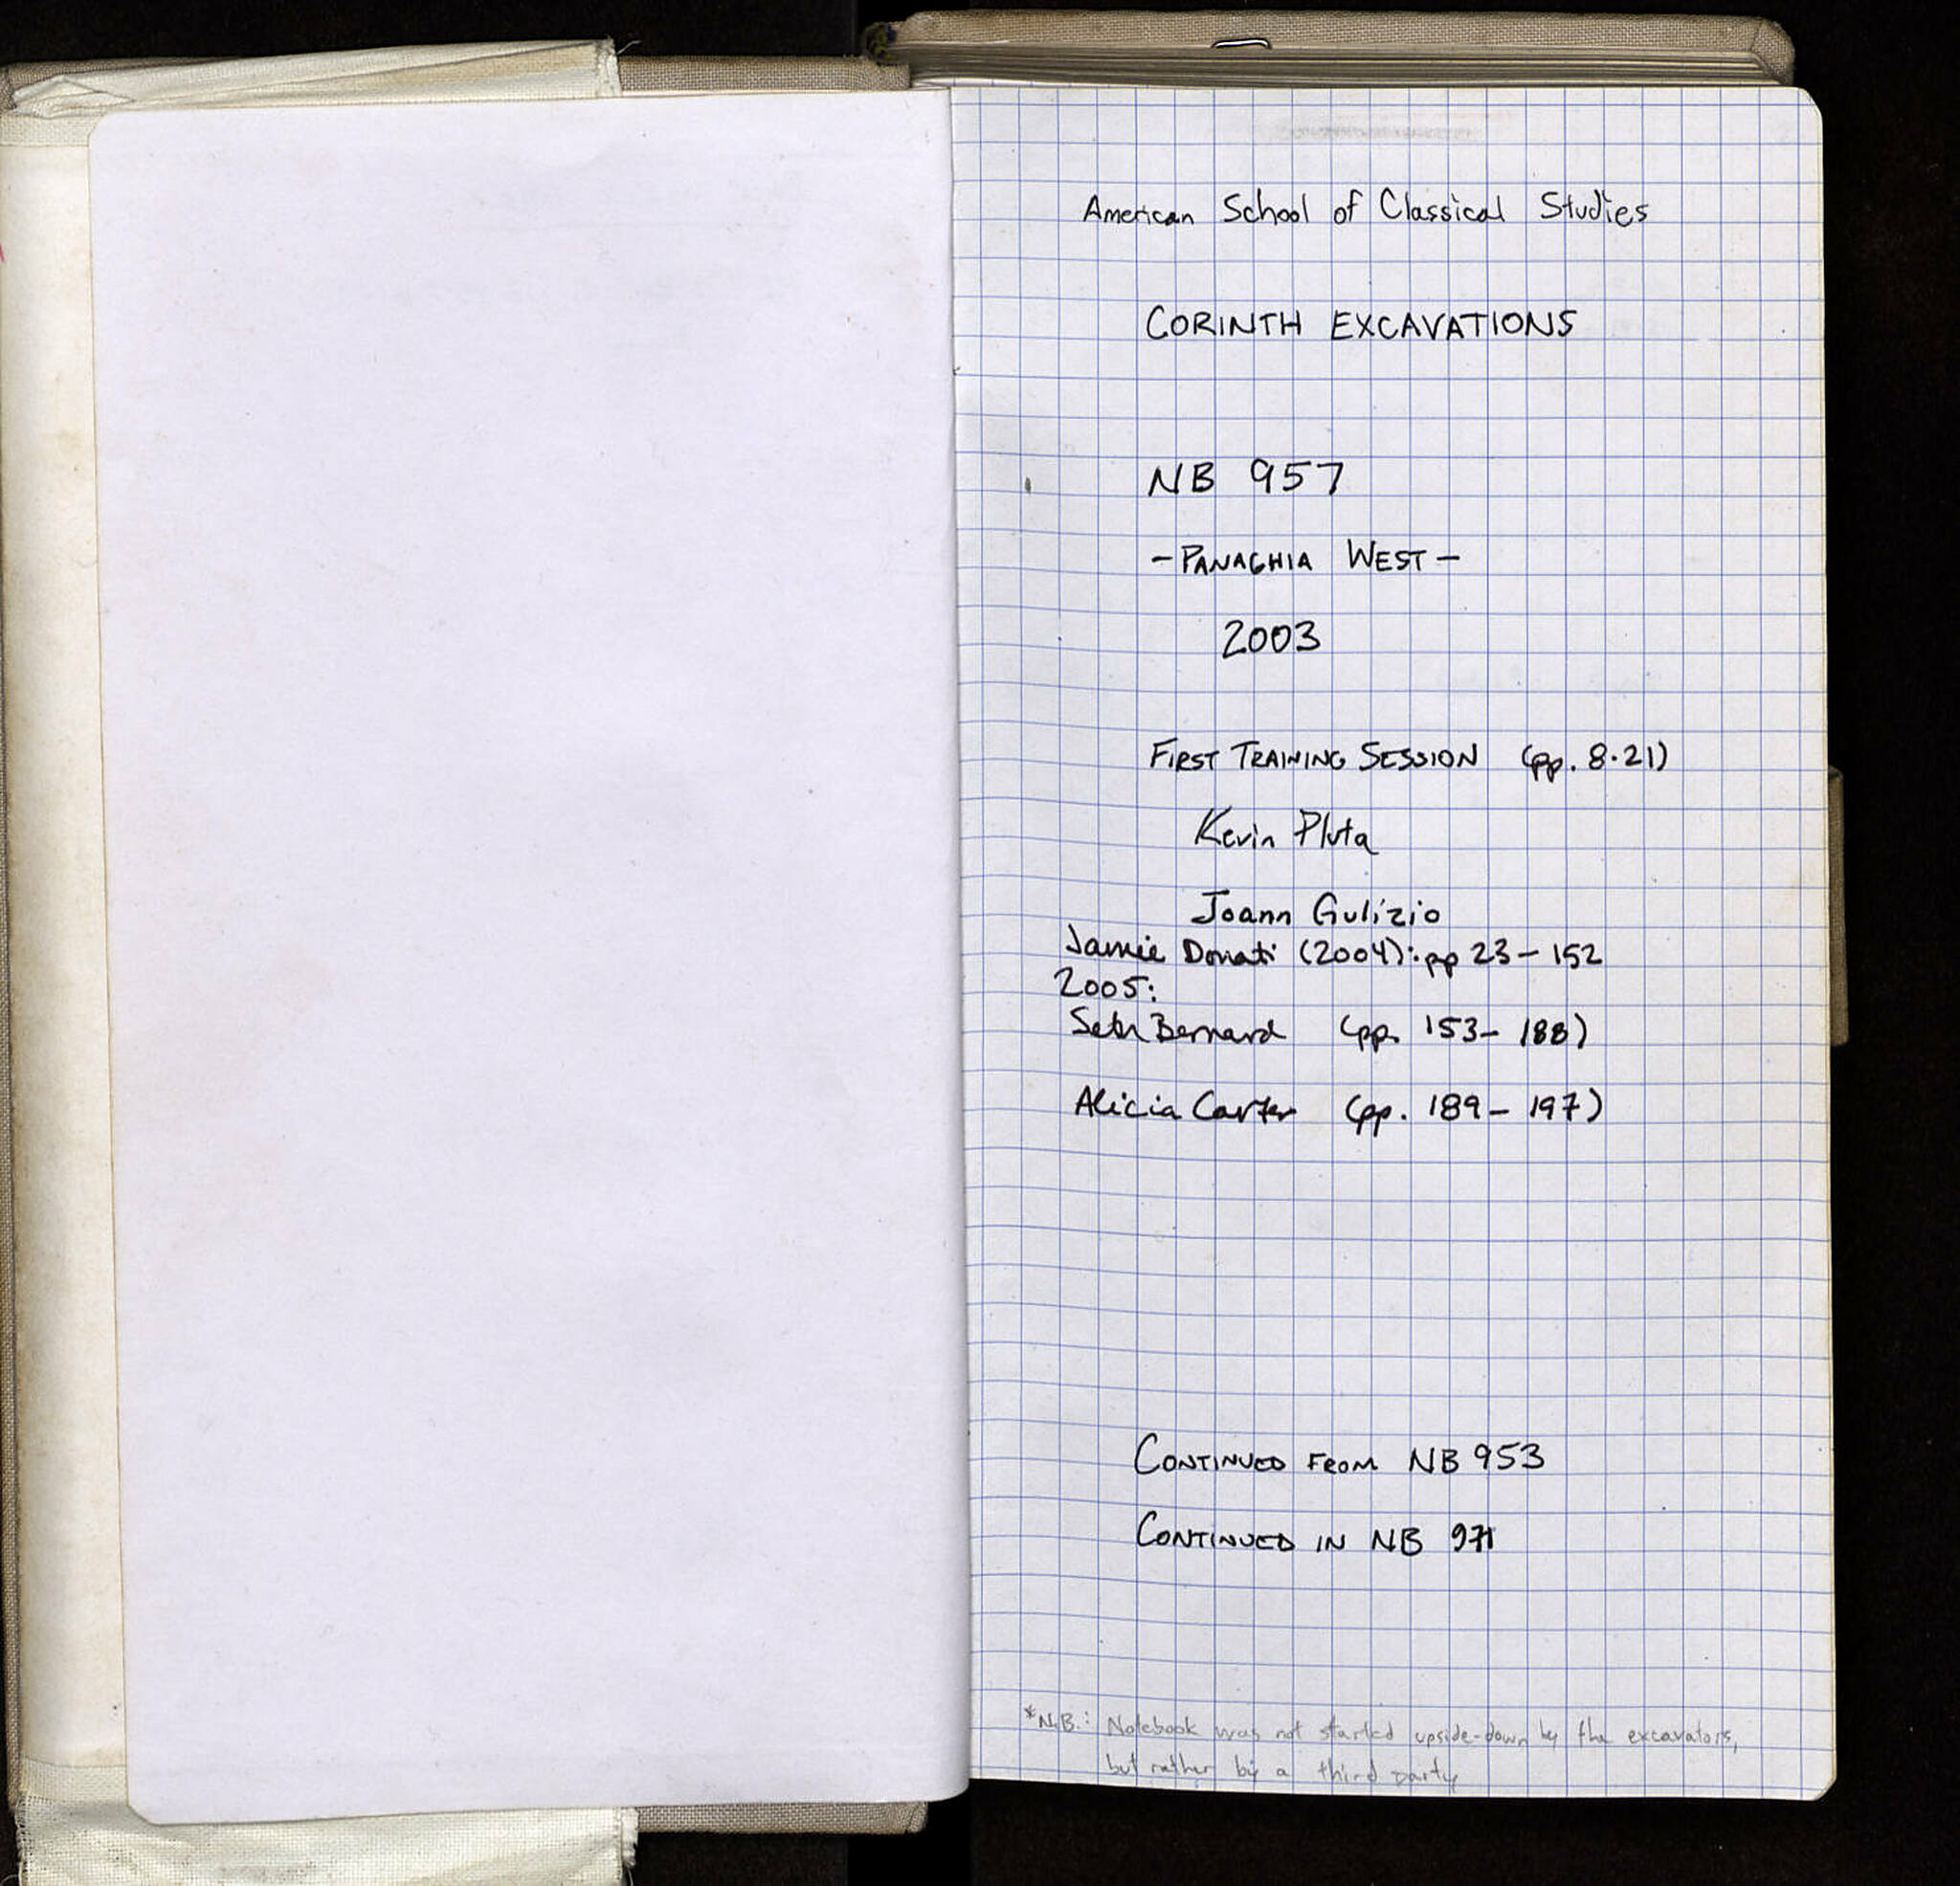 American School of Classical Studies
CORINTH EXCAVATIONS
NB 957
- PANAGHIA WEST -
2003
FIRST TRAINING SESSION (pp. 8-21)
Kevin Pluta
Joann Gulizio
Jamie Donati (2004): pp 23 - 152
2005:
Seth Bernard (pp. 153 - 188)
Alicia Carter (pp. 189 - 197)
CONTINUED FROM NB 953
CONTINUED IN NB 971
*N.B.: Notebook was not started upside-down by the excavators,
but rather by a third party